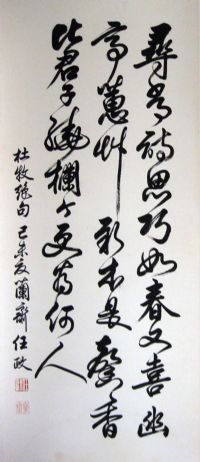 尋常詩思巧如春又喜幽
亭蕙艸新本是馨香
比君子繞欄今更為何人
杜牧絕句 己未夏蘭齋任政